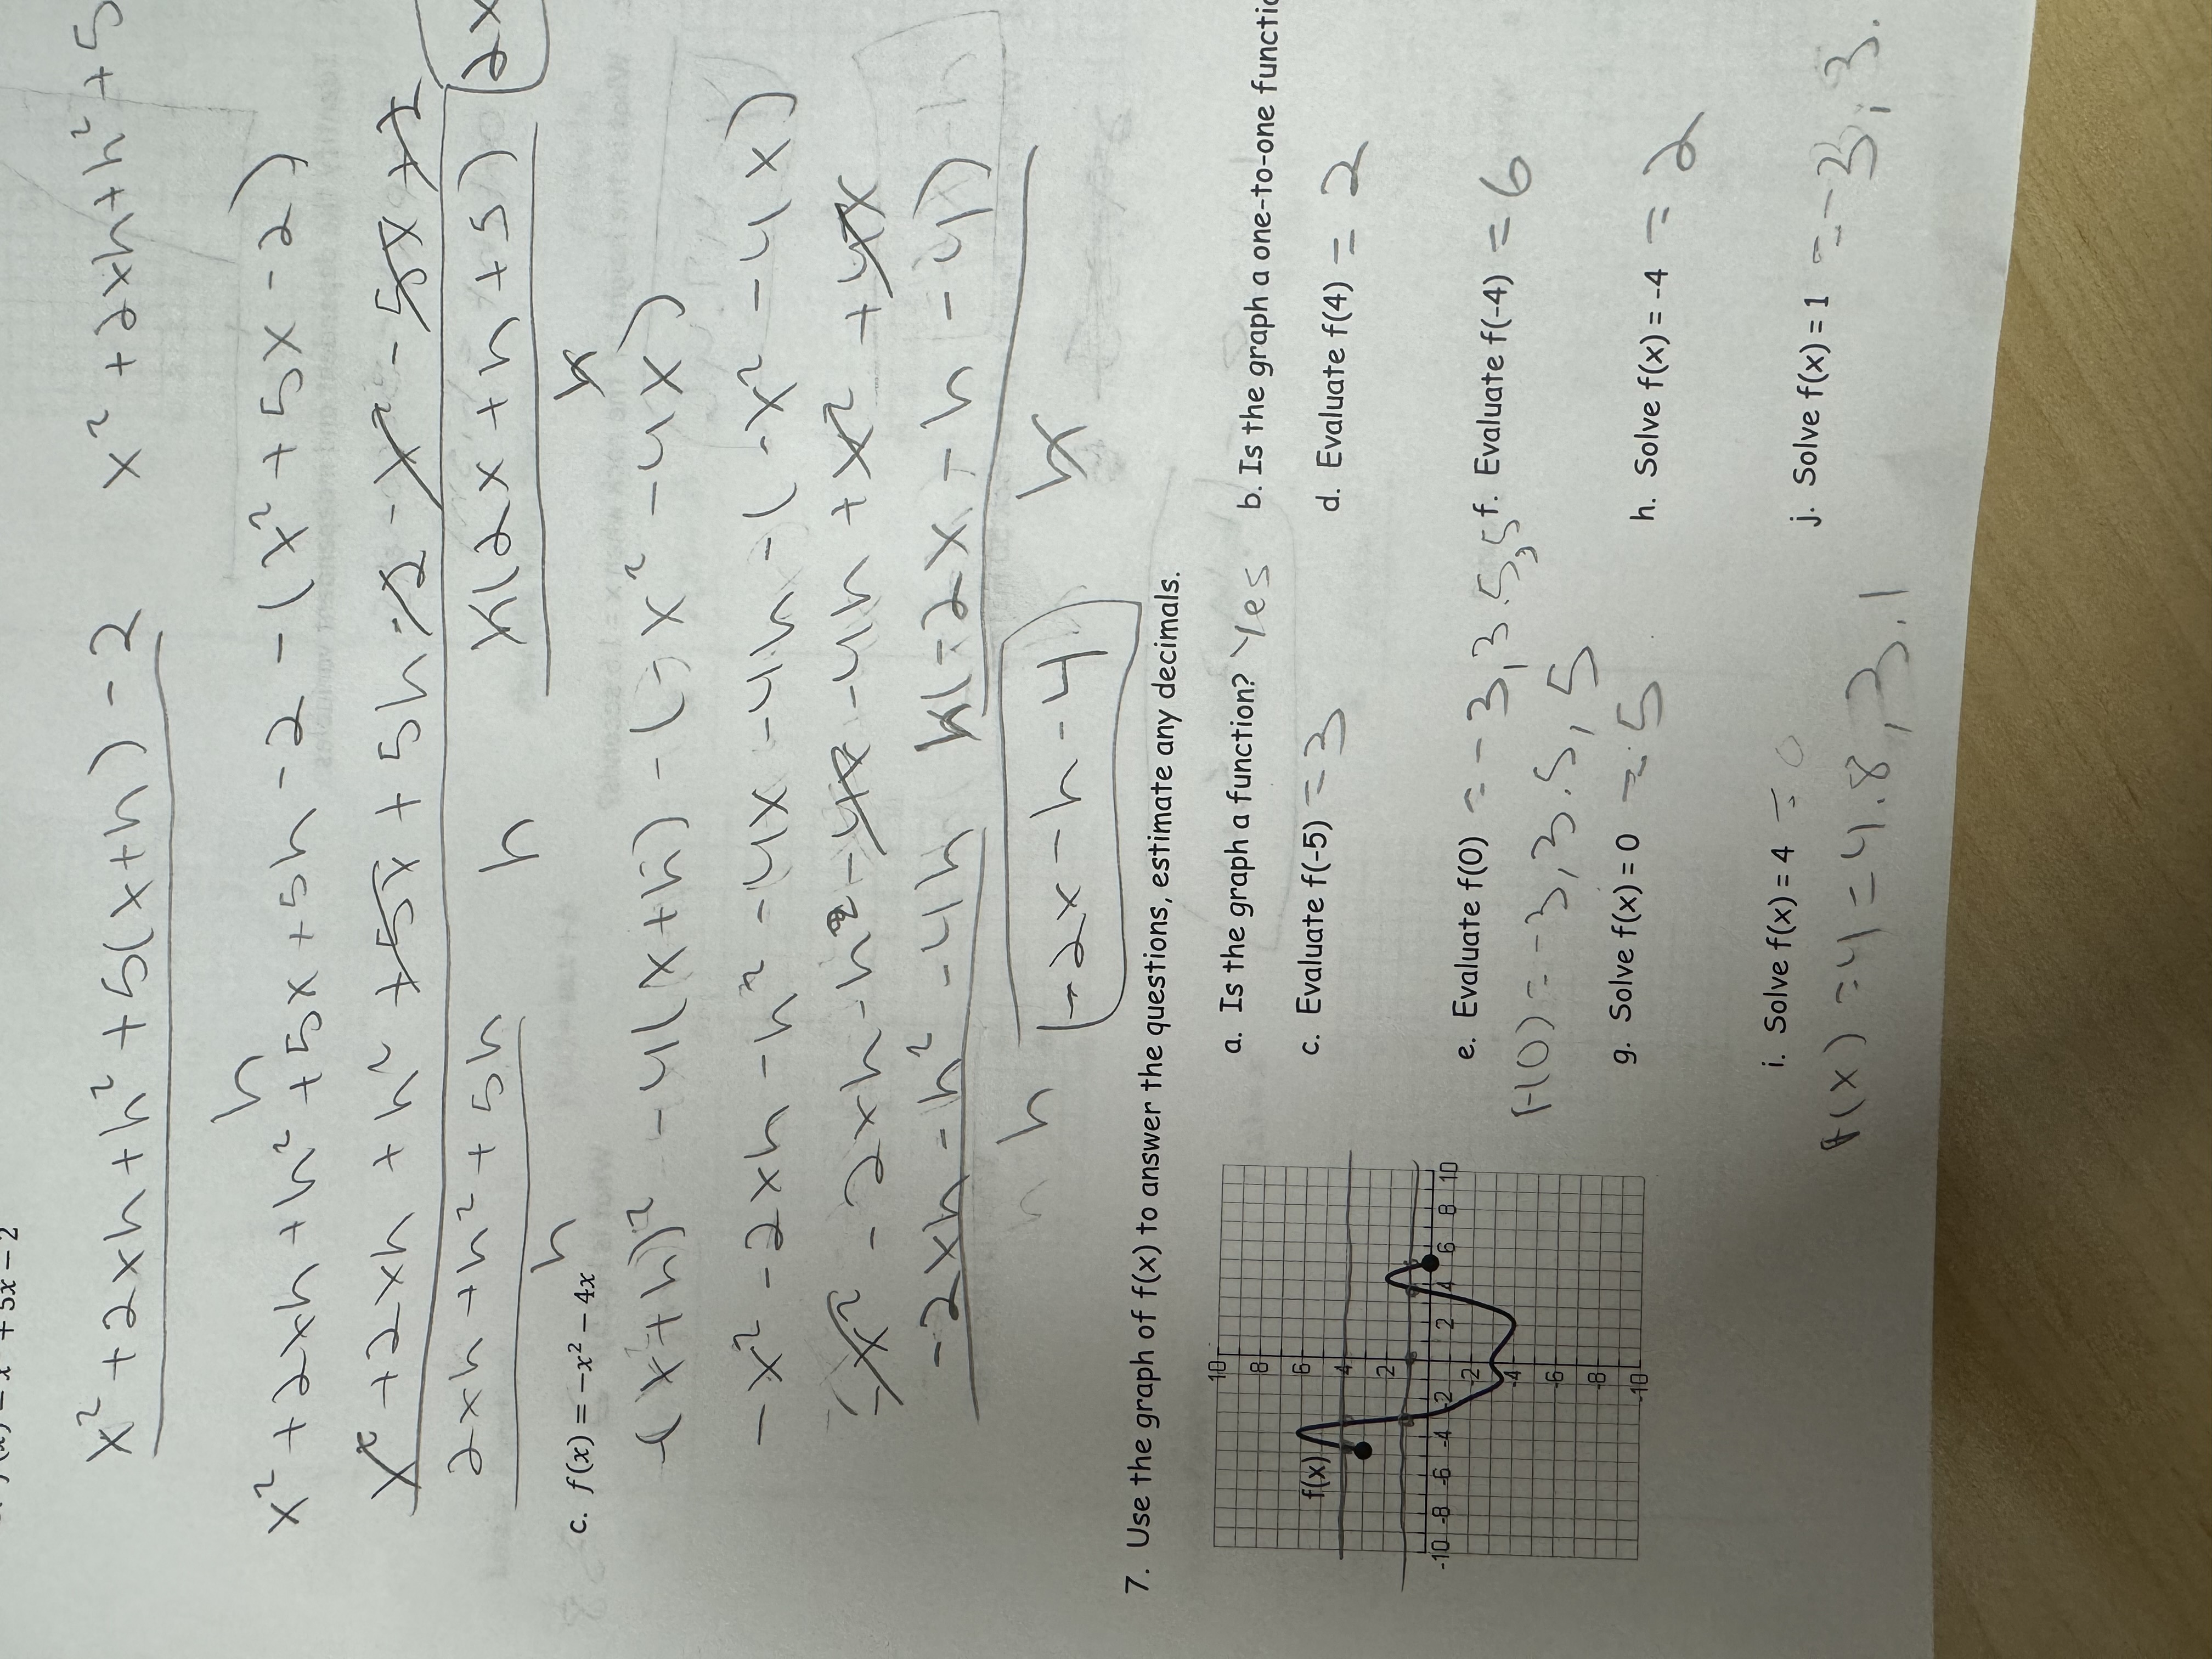 f(x) = x² + 5x − 2
x² + 2xh + h² + 5(x+h) - 2
h
x² + 2xh + h² + 5
x² + 2xh + h² + 5x + 5h - 2 - (x² + 5x - 2)
x² + 2xh + h² + 5x + 5h - 2 - x² - 5x + 2
h
2xh + h² + 5h
h
h(2x + h + 5)
h
2x
c. f(x) = −x² − 4x
-(x+h)² - 4(x+h) - (-x² - 4x)
-x² - 2xh - h² - 4x - 4h - (-x² - 4x)
-x² - 2xh - h² - 4x - 4h + x² + 4x
-2xh - h² - 4h
h
h(-2x - h - 4)
h
-2x - h - 4
7. Use the graph of f(x) to answer the questions, estimate any decimals.
10
8
6
4
2
-10 -8 -6 -4 -2 2 4 6 8 10
-2
-4
-6
-8
-10
f(x)
a. Is the graph a function? Yes
b. Is the graph a one-to-one functio
c. Evaluate f(-5) = 3
d. Evaluate f(4) = 2
e. Evaluate f(0) = -3, 3.5, 5
f. Evaluate f(-4) = 6
f(0) = -3, 3.5, 5
g. Solve f(x) = 0 = 5
h. Solve f(x) = -4 = 2
i. Solve f(x) = 4 = 0
f(x) = 4 = 4.8, 3.1
j. Solve f(x) = 1 = -3, 3.